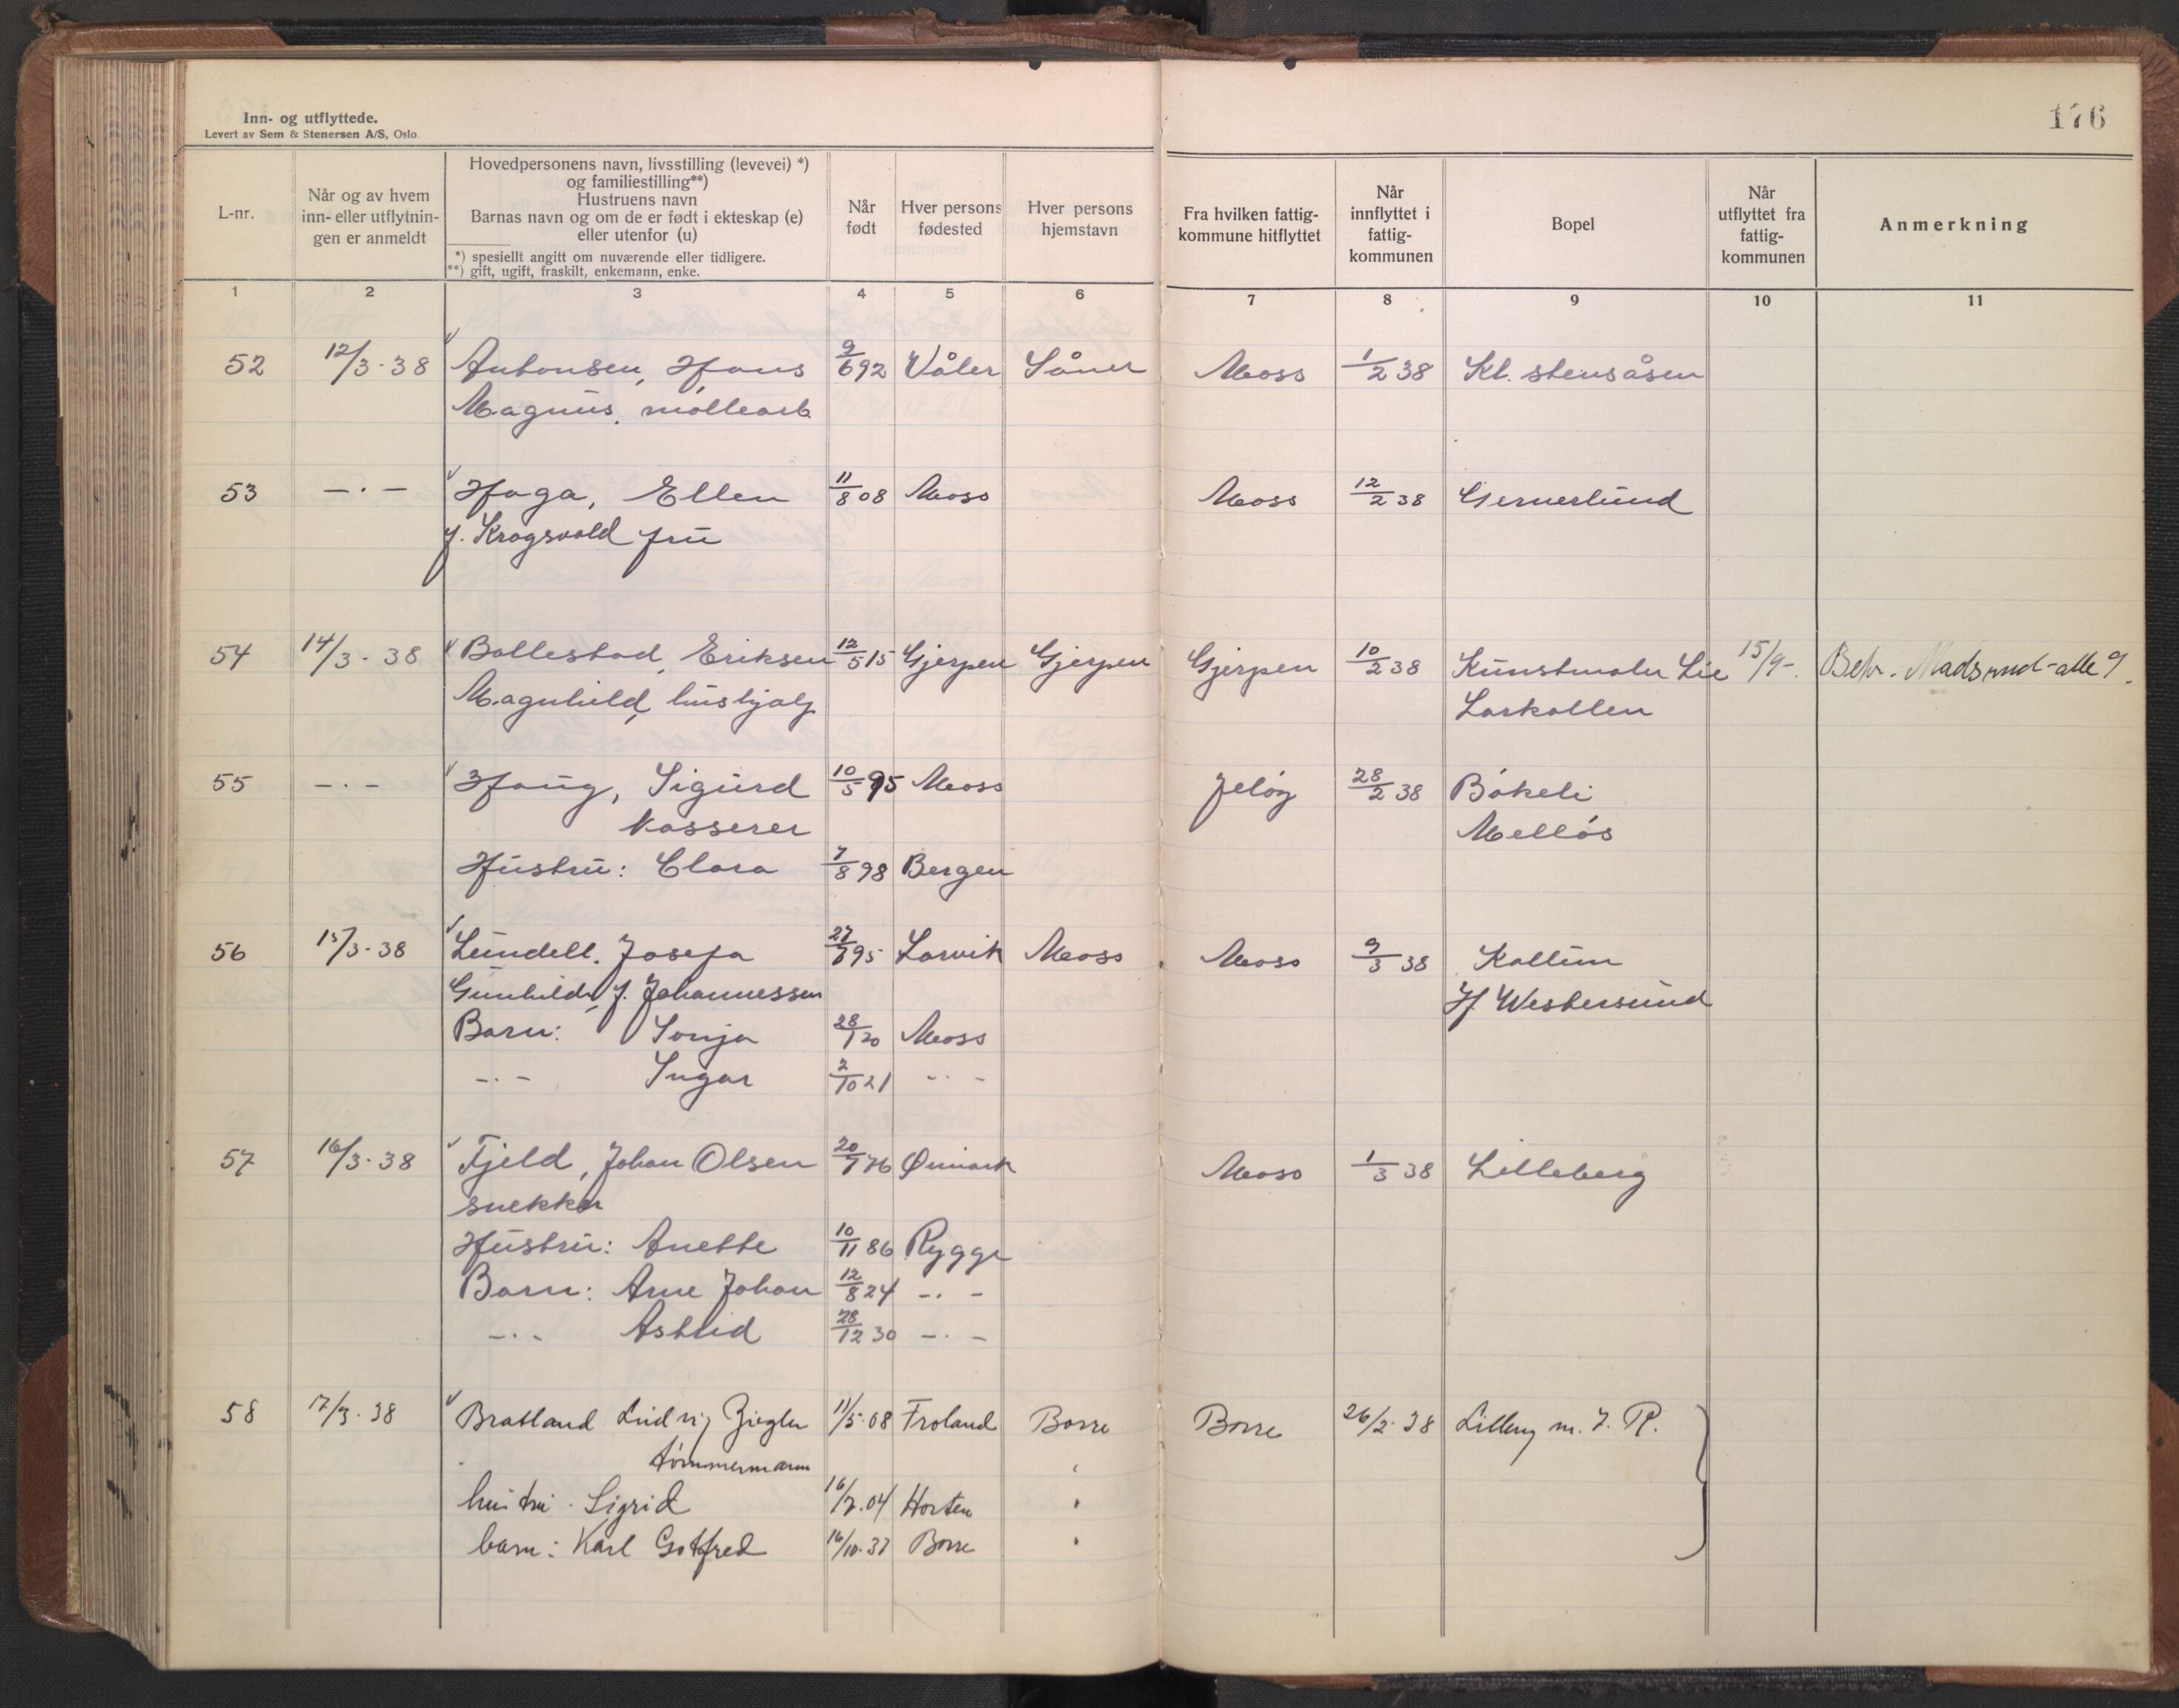 Inn- og utflyttede.
Levert av Sem & Stenersen A/S, Oslo.
176
L-nr.
Når og av hvem inn- eller utflytnin-gen er anmeldt
Hovedpersonens navn, livsstilling (levevei) *)
og familiestilling**)
Hustruens navn
Barnas navn og om de er født i ekteskap (e)
eller utenfor (u)
*) spesiellt angitt om nuværende eller tidligere.
**) gift, ugift, fraskilt, enkemann, enke.
Når født
Hver persons fødested
Hver persons hjemstavn
Fra hvilken fattig-kommune hitflyttet
Når innflyttet i fattig-kommunen
Bopel
Når utflyttet fra fattig-kommunen
Anmerkning
1 2 3 4 5 6 7 8 9 10 11
52 12/3-38 Antonsen, Hans 9/6 92 Våler Såner Moss 1/2 38 Kl. stensåsen
Magnus, møllearb.
53 -·- Haga, Ellen 11/8 08 Moss Moss 12/2 38 Gernerlund
f. Krogsvold fru
54 14/3-38 Bollestad, Eriksen 12/5 15 Gjerpen Gjerpen Gjerpen 10/2 38 Kunstmaler Lie 15/9-. Madsrud-alle 9.
Magnhild, hushjalp Larkollen
55 -·- Haug, Sigurd 10/5 95 Moss Jeløy 28/2 38 Bøkeli
kasserer Melløs
Hustru: Clara 7/8 98 Bergen
56 15/3-38 Lundell, Josefa 95 Larvik Moss Moss 9/3 38 Kallum
Gunhild, f. Johannessen H. Westersund
Barn: Sonja 28/1 20 Moss
-·- Ingar 2/10 21 -·-
57 16/3-38 Fjeld, Johan Olsen 20/7 76 Ømark Moss 1/3 38 Lilleberg
snekker
Hustru: Anette 10/11 86 Rygge
Barn: Arne Johan 12/8 24 -·-
-·- Astrid 28/12 30 -·-
58 17/3-38 Bratland Ludvig Ziegler 11/5-08 Froland Borre Borre 26/2-38 m. J. R.
tømmermann
hustru Sigrid 16/7.04 Horten "
barn: Karl Gotfred 16/10-37 Borre "